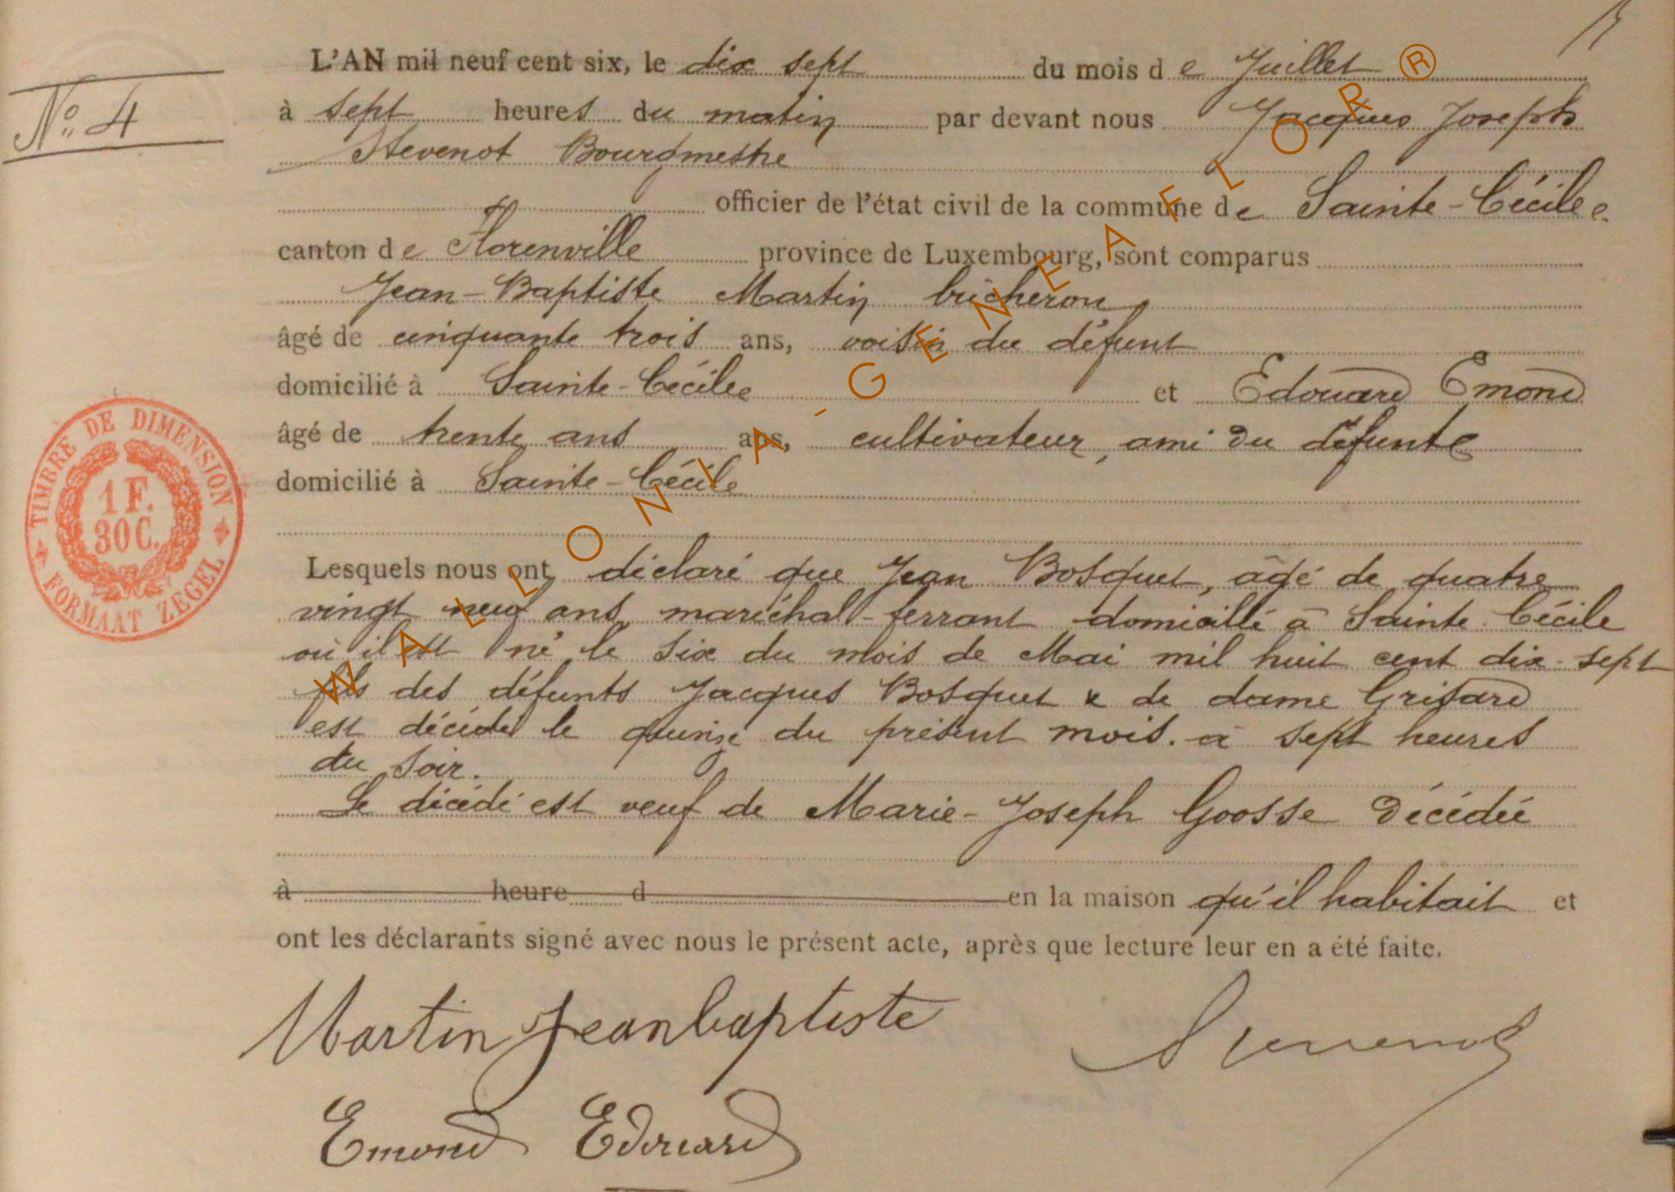 L'AN mil neuf cent six, le dix sept du mois de Juillet
N° 4
à sept heures du matin par devant nous Jacques Joseph
Stevenot Bourgmestre
officier de l'état civil de la commune de Sainte-Cécile
canton de Florenville province de Luxembourg, sont comparus
Jean-Baptiste Martin bûcheron
âgé de cinquante trois ans, voisin du défunt
domicilié à Sainte-Cécile et Edouard Emond
âgé de trente ans ans, cultivateur, ami du défunt
domicilié à Sainte-Cécile
TIMBRE DE DIMENSION
1 F.
30 C.
FORMAAT ZEGEL
Lesquels nous ont déclaré que Jean Bosquet, âgé de quatre
vingt neuf ans, maréchal-ferrant domicilié à Sainte Cécile
où il est né le six du mois de Mai mil huit cent dix-sept
fils des défunts Jacques Bosquet & de dame Grisard
est décédé le quinze du présent mois. à sept heures
du soir.
Le décédé est veuf de Marie-Joseph Goosse décédée
à heure d en la maison qu'il habitait et
ont les déclarants signé avec nous le présent acte, après que lecture leur en a été faite.
Martin Jeanbaptiste Stevenot
Emond Edouard
WALLONIA-GENEAFLOR®